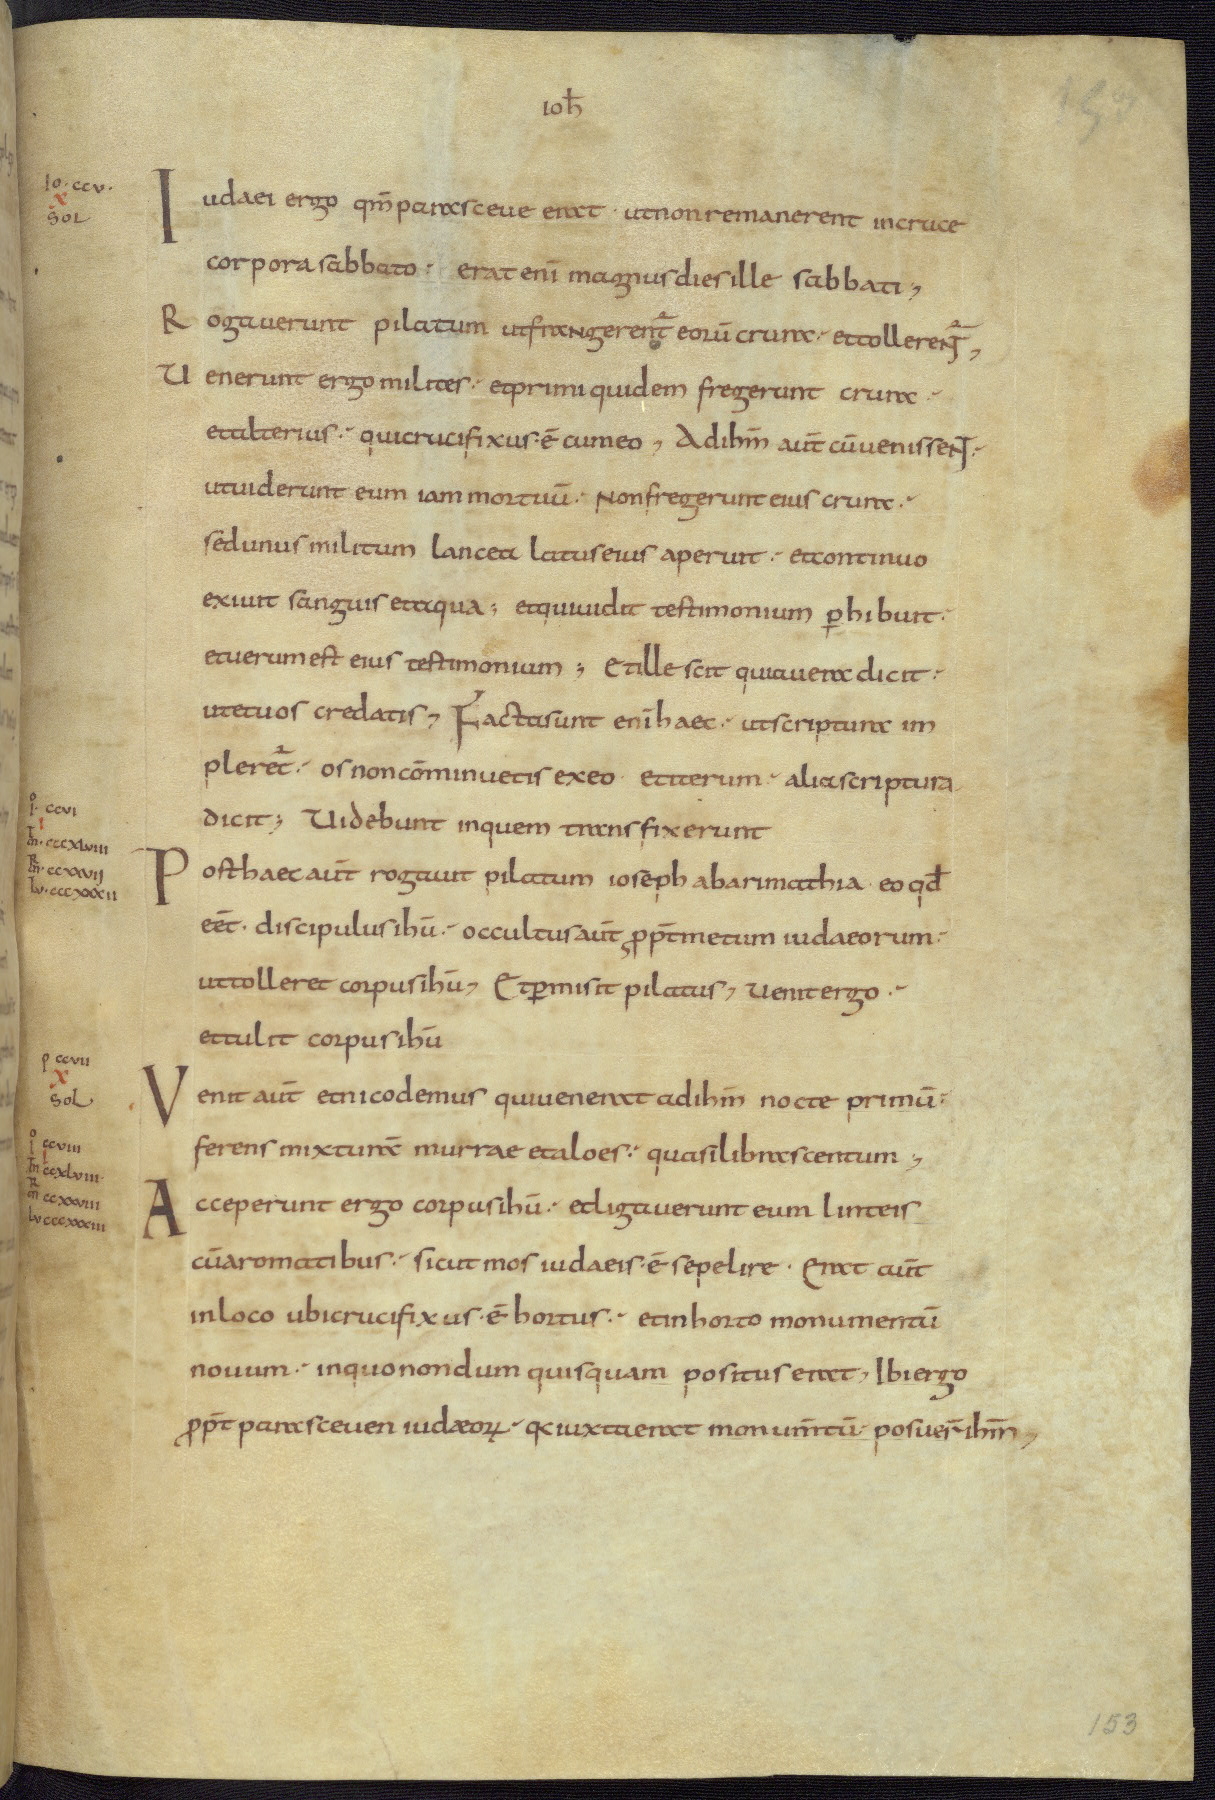 ioh̄
Io·ccv·
x
Sol
Iudaei ergo qm̄ parasceue erat · ut non remanerent in cruce
corpora sabbato : erat eni̅ magnus dies ille sabbati ,
Rogauerunt pilatum ut frangerent̄ eorū crura · et tollerent̄ ,
Uenerunt ergo milites · et primi quidem fregerunt crura ·
et alterius · qui crucifixus · ē cum eo , Ad ihm̄ aut̄ cū uenissent ·
ut uiderunt eum iam mortuū · Non fregerunt eius crura ·
sed unus militum lancea latus eius aperuit · et continuo
exiuit sanguis et aqua ; et qui uidit testimonium phibuit ·
et uerum est eius testimonium ; Et ille scit quia uera dicit ·
ut et uos credatis , Facta sunt eni̅ haec · ut scriptura im
pleret̄ · os non cōminuetis ex eo · et iterum · alia scriptura
dicit ; Uidebunt in quem transfixerunt
io · ccvi
i
m̄ · cccxlviii
mr · ccxxvii
lv · cccxxxii
Post haec aut̄ rogauit pilatum ioseph ab arimathia · eo qd̄
eēt · discipulus ihū · occultus aut̄ ꝓpt̄ metum iudaeorum ·
ut tolleret corpus ihū , Et pmisit pilatus , uenit ergo ·
et tulit corpus ihū
p ccvii
x
Sol
Venit aut̄ et nicodemus qui uenerat ad ihm̄ nocte primū ·
ferens mixturā murrae et aloes · quasi libras centum ,
io ccviii
i
m̄ ccxlviii
mr ccxxviii
lv cccxxxiii
Acceperunt ergo corpus ihū · et ligauerunt eum linteis
cū aromatibus · sicut mos iudaeis · ē sepelire · Erat aut̄
in loco ubi crucifixus · ē hortus · et in horto monumentū
nouum · in quo nondum quisquam positus erat , Ibi ergo
ꝓpt̄ parasceuen iudæoꝝ · q̄ iuxta erat monumt̄ū posuer̄ ihm̄ ,
153